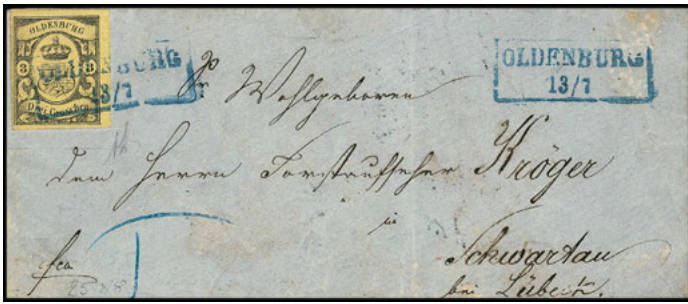 OLDENBURG
3 3
Drei Groschen
OLDENBURG
13/7
OLDENBURG
13/7
Sr Wohlgeboren
dem Herrn Forstaufseher Kröger
in
Schwartau
bei Lübeck.
fco